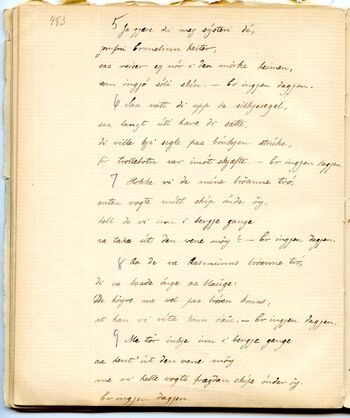 483
5 Ja gjeve du meg systeri dé,
jomfrú Ermelinn heiter,
saa veiser eg nór i den mörke heimen,
som ingjó sóli skin. – Er ingjen dagjen.
6 Saa vatt di upp da silkjesegel,
saa langt úti have di sótte,
di ville kji segle paa bónkjen strike,
fö trollebotn var imot skjøfte. – Er ingjen dagjen.
7 Hokke vi de mine bröanne tvó,
anten vogte mitt skip únde öy,
hell de vi inn i bergje gange
aa take út den vene möy? – Er ingjen dagjen.
8 Aa de va Rasmuinns bröanne tvó,
di va baade únge aa blauge:
De höyre me vel paa bróren konns,
at han vi vita konn dauv. – Er ingjen dagjen.
9 Me tör inkje inn i bergje gange
aa hent' út den vene möy
me vi helle vogte frægdan skipe únder öy.
Er ingjen dagjen.